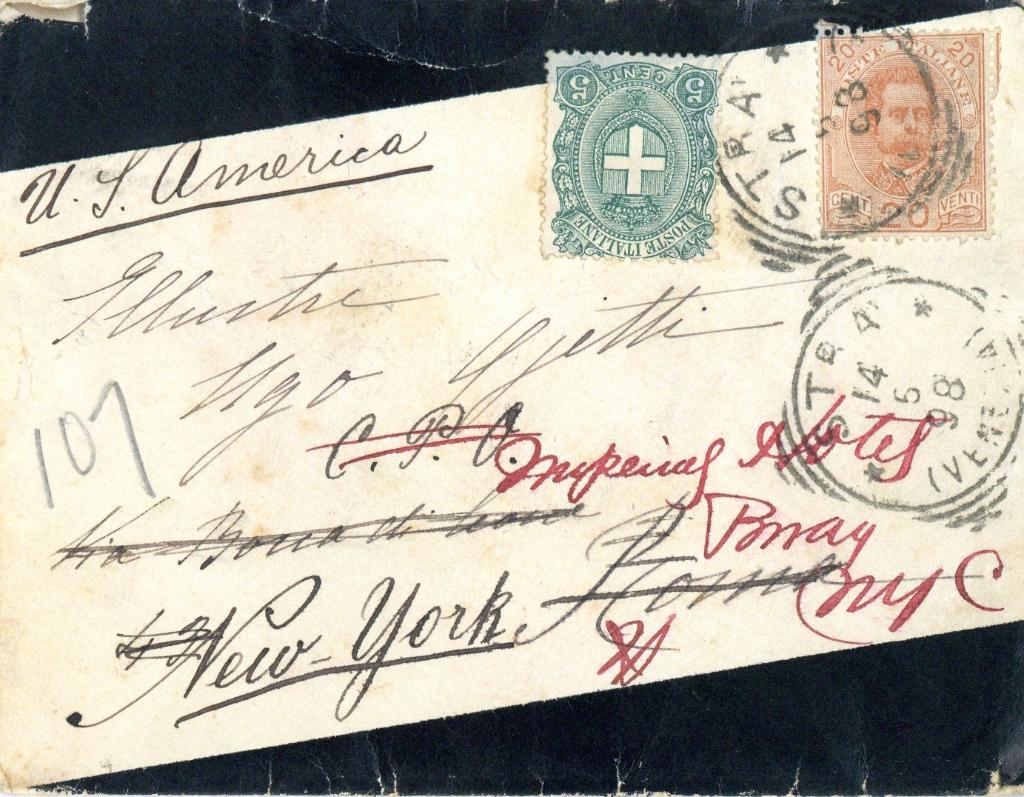 U. S. America
5 CENT. 5
POSTE ITALIANE
20 POSTE ITALIANE 20
CENT 20 VENTI
STRA' * 14 98
STRA' * 14 5 98 (VENEZIA) *
Illustre
Ugo Ojetti
107
C. P. O.
Imperial Hotel
Via Bocca di Leone
Bway
Roma
NYC
New-York